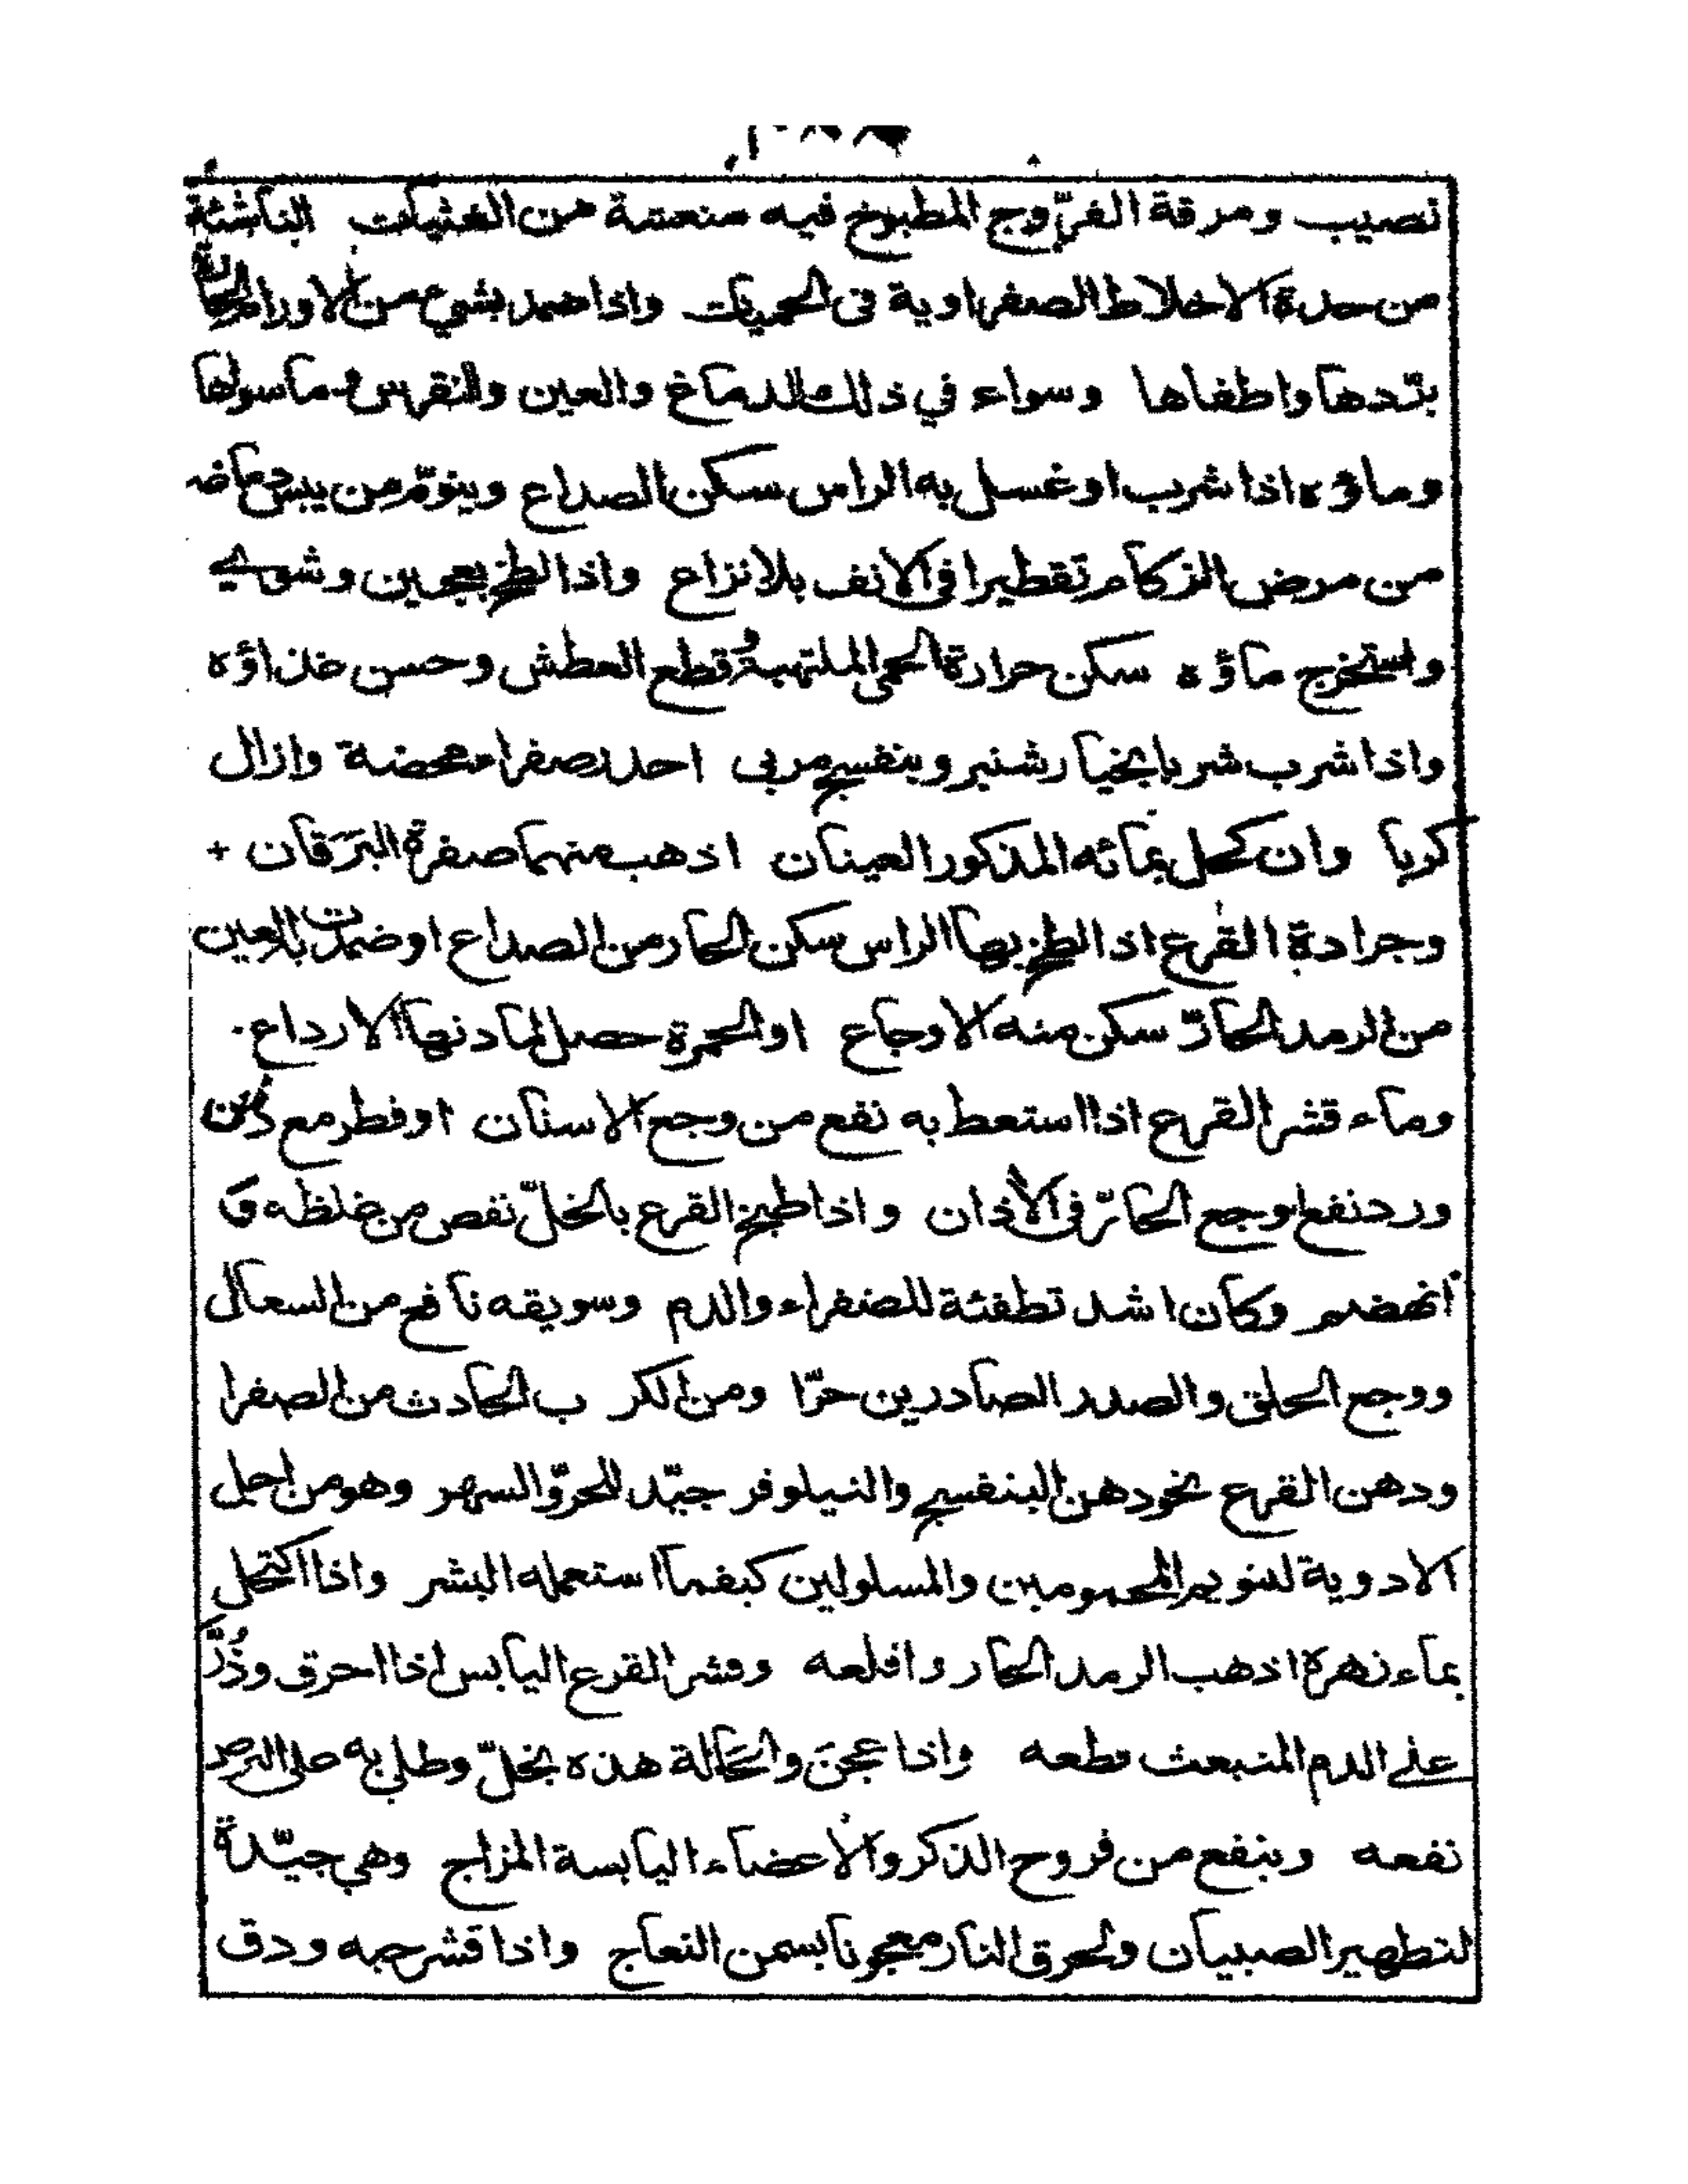 نصيب ومرقة الفرّوج المطبوخ فيه منعشة من الغثيات الناشئة
من حدة الاخلاط الصفراوية فى الحميات واذا ضمد بشيء من الاورام الحارة
بردها واطفاها وسواء في ذلك الدماغ والعين والنقرس وما سواها
وماؤه اذا شرب او غسل به الراس سكن الصداع وينوّم من يبس دماغه
من مرض الزكام تقطيرا فى الانف بلا نزاع واذا لطخ بعجين وشوي
واستخرج ماؤه سكن حرارة الحمى الملتهبة وقطع العطش وحسن غذاؤه
واذا شرب شربا بخيار شنبر وبنفسج مربى احدر صفراء محضة وازال
كربا وان كحل بمائه المذكور العينان اذهب منهما صفرة اليَرَقان +
وجرادة القرع اذا لطخ بها الراس سكن الحار من الصداع او ضمدت بالعين
من الرمد الحارّ سكن منه الاوجاع او الحمرة حصل لمادتها الارداع.
وماء قشر القرع اذا استعط به نفع من وجع الاسنان او قطر مع دهن
ورد نفع لوجع الحارّ فى الأذان واذا طبخ القرع بالخلّ نقص من غلظه و
انهضم وكان اشد تطفئة للصفراء والدم وسويقه نافع من السعال
ووجع الحلق والصدر الصادرين حرّا ومن الكرب الحادث من الصفرا
ودهن القرع نحو دهن البنفسج والنيلوفر جيّد للحرّ والسهر وهو من اجل
الادوية لتنويم المحمومين والمسلولين كيفما استعمله البشر واذا اكتحل
بماء زهرة اذهب الرمد الحار واقلعه وقشر القرع اليابس اذا احرق وذُرَّ
على الدم المنبعث قطعه واذا عجن والحالة هذه بخلّ وطلي به على البرص
نفعه وينفع من قروح الذكر والأعضاء اليابسة المزاج وهي جيّدة
لتطهير الصبيان ولحرق النار معجونا بسمن النعاج واذا قشر حبه ودق